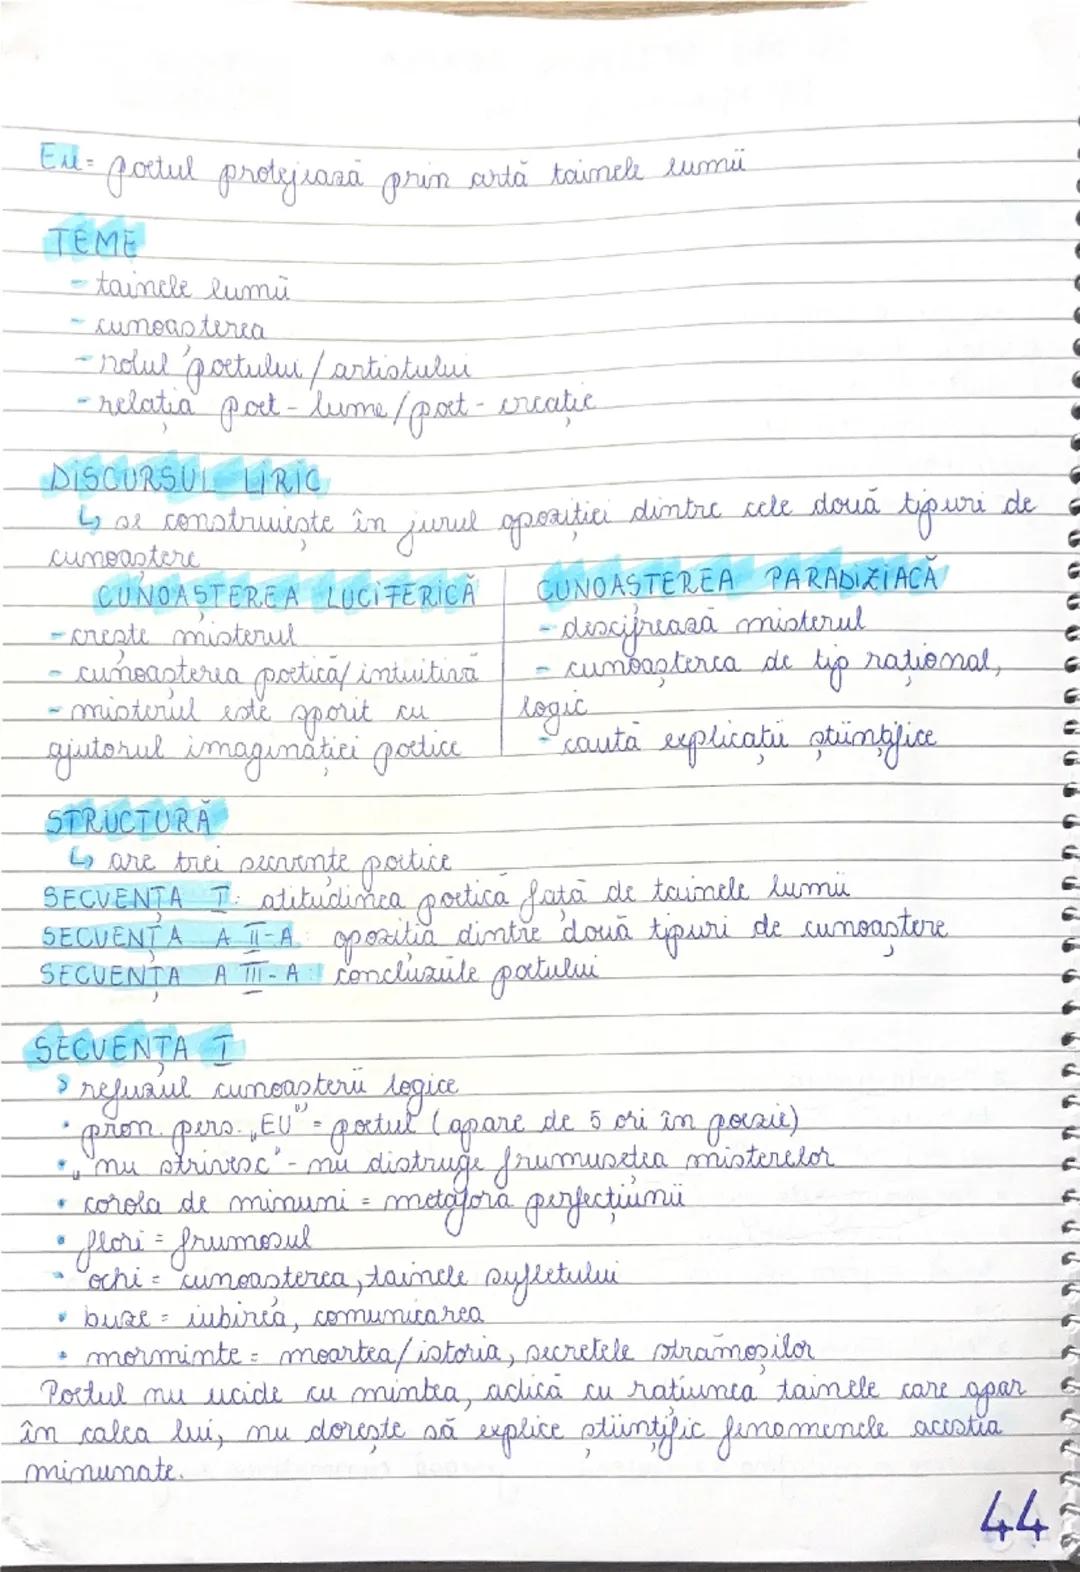 Eu = poetul protejează prin artă tainele lumii
TEME
- tainele lumii
- cunoașterea
- rolul poetului / artistului
- relația poet - lume / poet - creație
DISCURSUL LIRIC
↳ se construiește în jurul opoziției dintre cele două tipuri de
cunoaștere
CUNOAȘTEREA LUCIFERICĂ
- crește misterul
- cunoașterea poetică / intuitivă
- misterul este sporit cu
ajutorul imaginației poetice
CUNOAȘTEREA PARADIZIACĂ
- descifrează misterul
- cunoașterea de tip rațional,
logic
- caută explicații științifice
STRUCTURĂ
↳ are trei secvențe poetice
SECVENȚA I: atitudinea poetică față de tainele lumii
SECVENȚA A II-A: opoziția dintre două tipuri de cunoaștere
SECVENȚA A III-A: concluziile poetului
SECVENȚA I
> refuzul cunoașterii logice
• pron. pers. „EU" = poetul (apare de 5 ori în poezie)
• „nu strivesc" - nu distruge frumusețea misterelor
• corola de minuni = metafora perfecțiunii
• flori = frumosul
• ochi = cunoașterea, tainele sufletului
• buze = iubirea, comunicarea
• morminte = moartea / istoria, secretele strămoșilor
Poetul nu ucide cu mintea, adică cu rațiunea tainele care apar
în calea lui, nu dorește să explice științific fenomenele acestia
minunate.
44